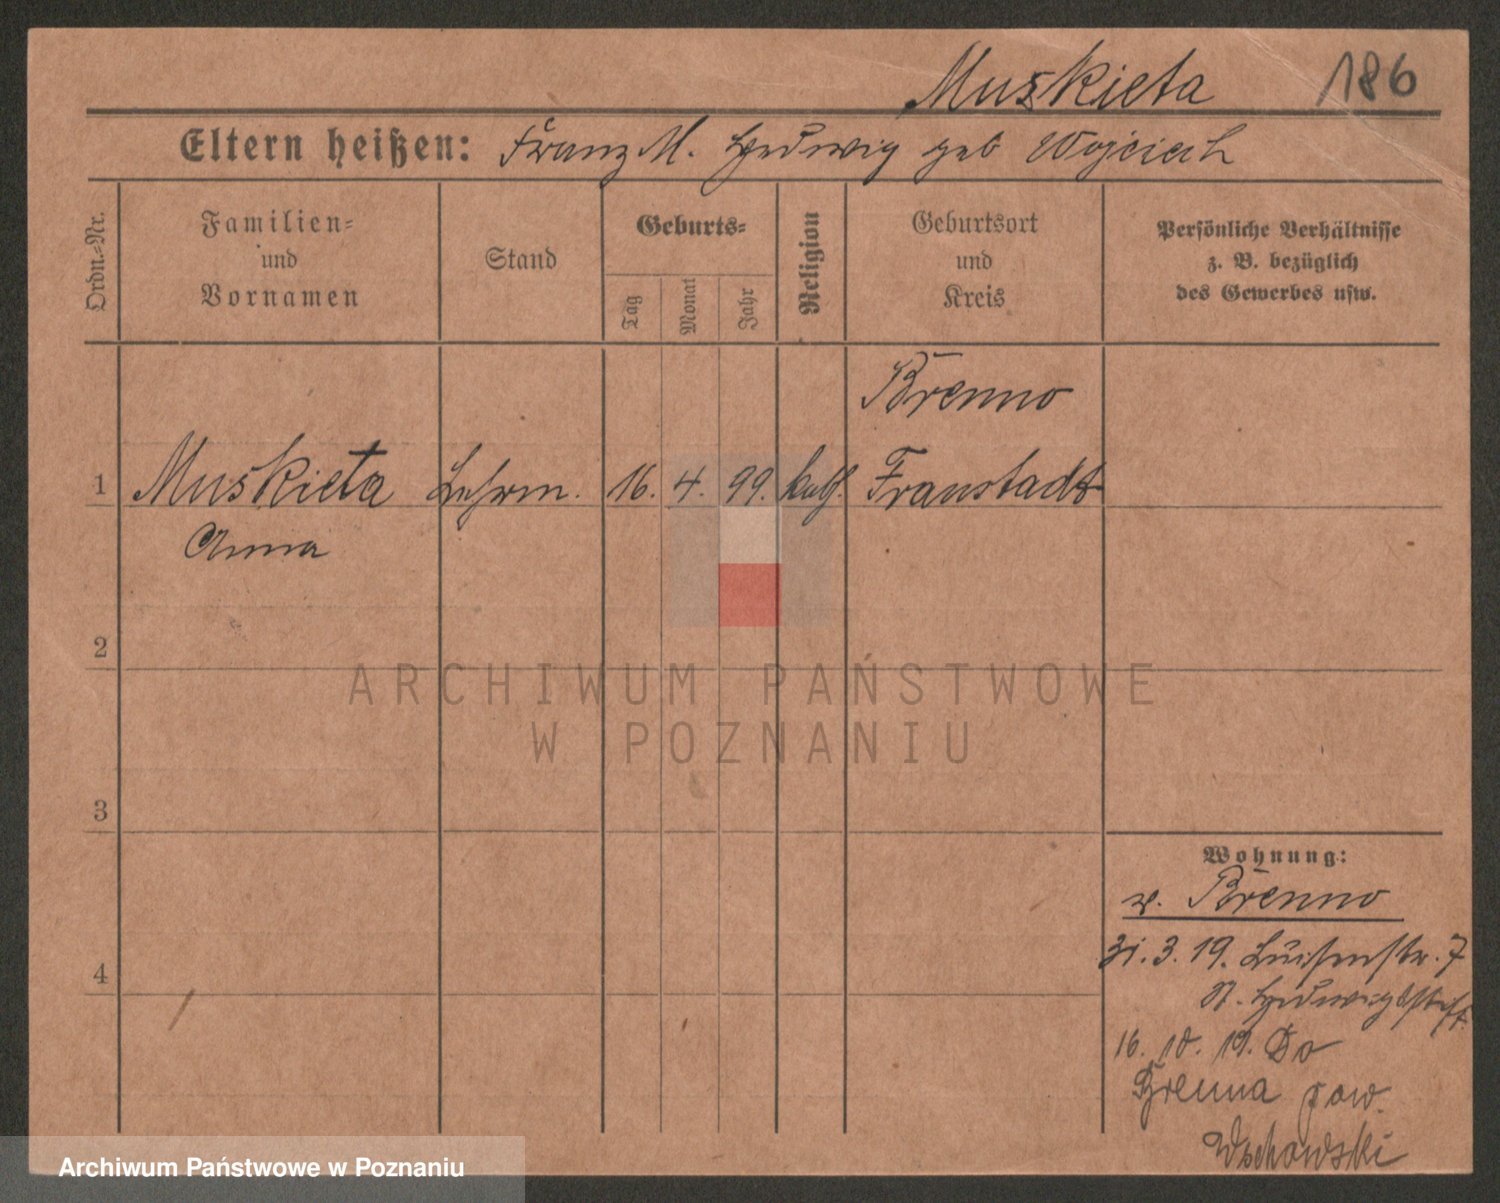 Muskieta 186
Eltern heißen: Franz M. Hedwig geb Wojciech
Ordn.-Nr.
Familien-
und
Vornamen
Stand
Geburts-
Tag
Monat
Jahr
Religion
Geburtsort
und
Kreis
Persönliche Verhältnisse
z. B. bezüglich
des Gewerbes usw.
Brenno
1 Muskieta Lehrm. 16. 4. 99. kath. Fraustadt
Anna
2
3
4
Wohnung:
v. Brenno
31. 3. 19. Luisenstr. 7
St. Hedwigstift
16. 10. 19. Do
Brenna pow.
Wschowski
ARCHIWUM PAŃSTWOWE
W POZNANIU
Archiwum Państwowe w Poznaniu